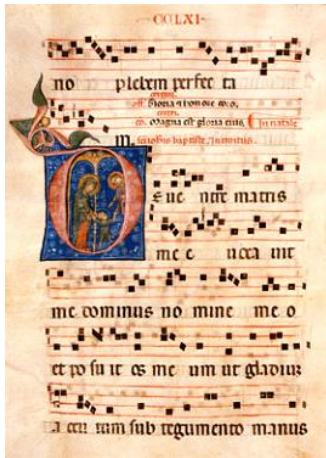 CCLXI
no plebem perfec ta
off. Gloria et honore
co. Magna est gloria eius. In natale
baptiste
D E uen tre matris
me e uoca uit
me dominus no mine me o
et po su it os me um ut gladium
a cu tum sub tegumento manus